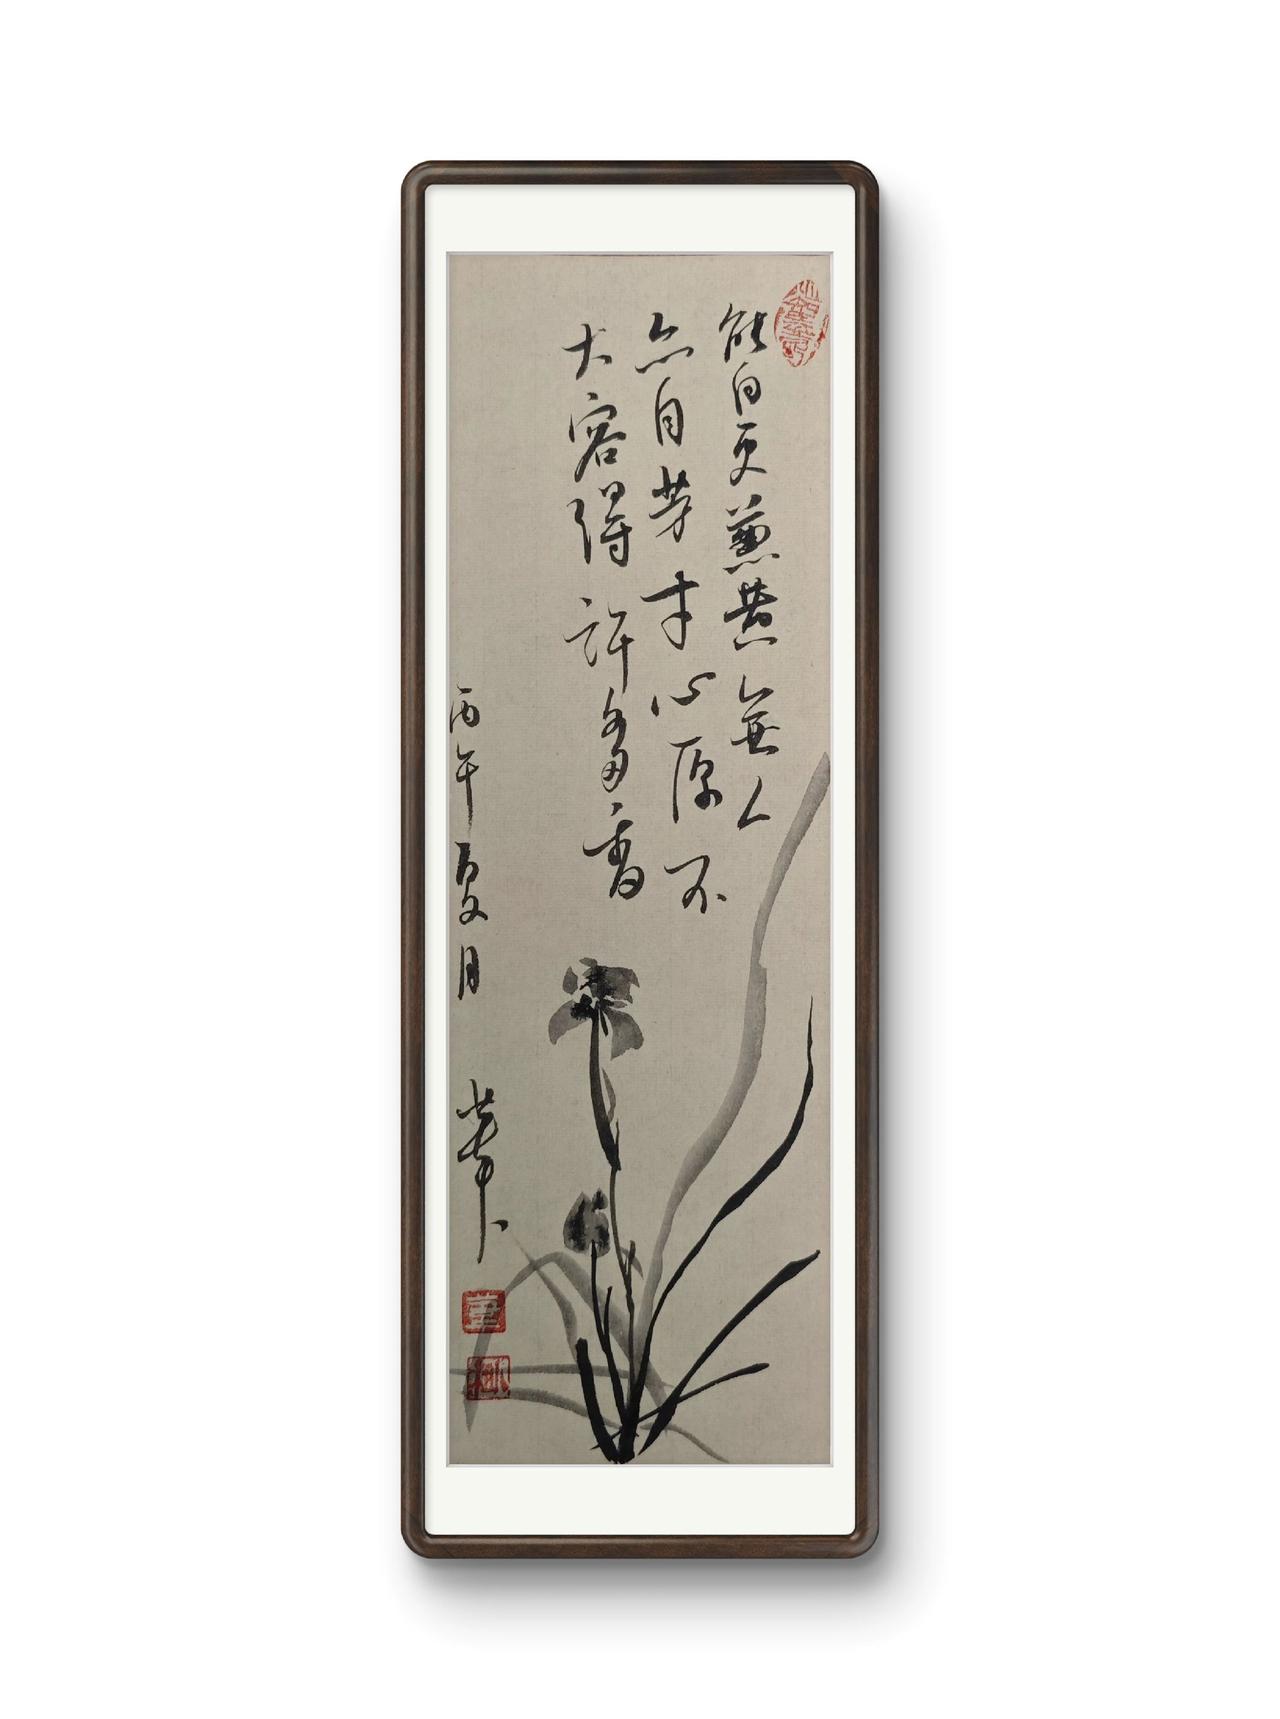 能白更兼黄無人
亦自芳寸心原不
大容得許多香
丙午夏月